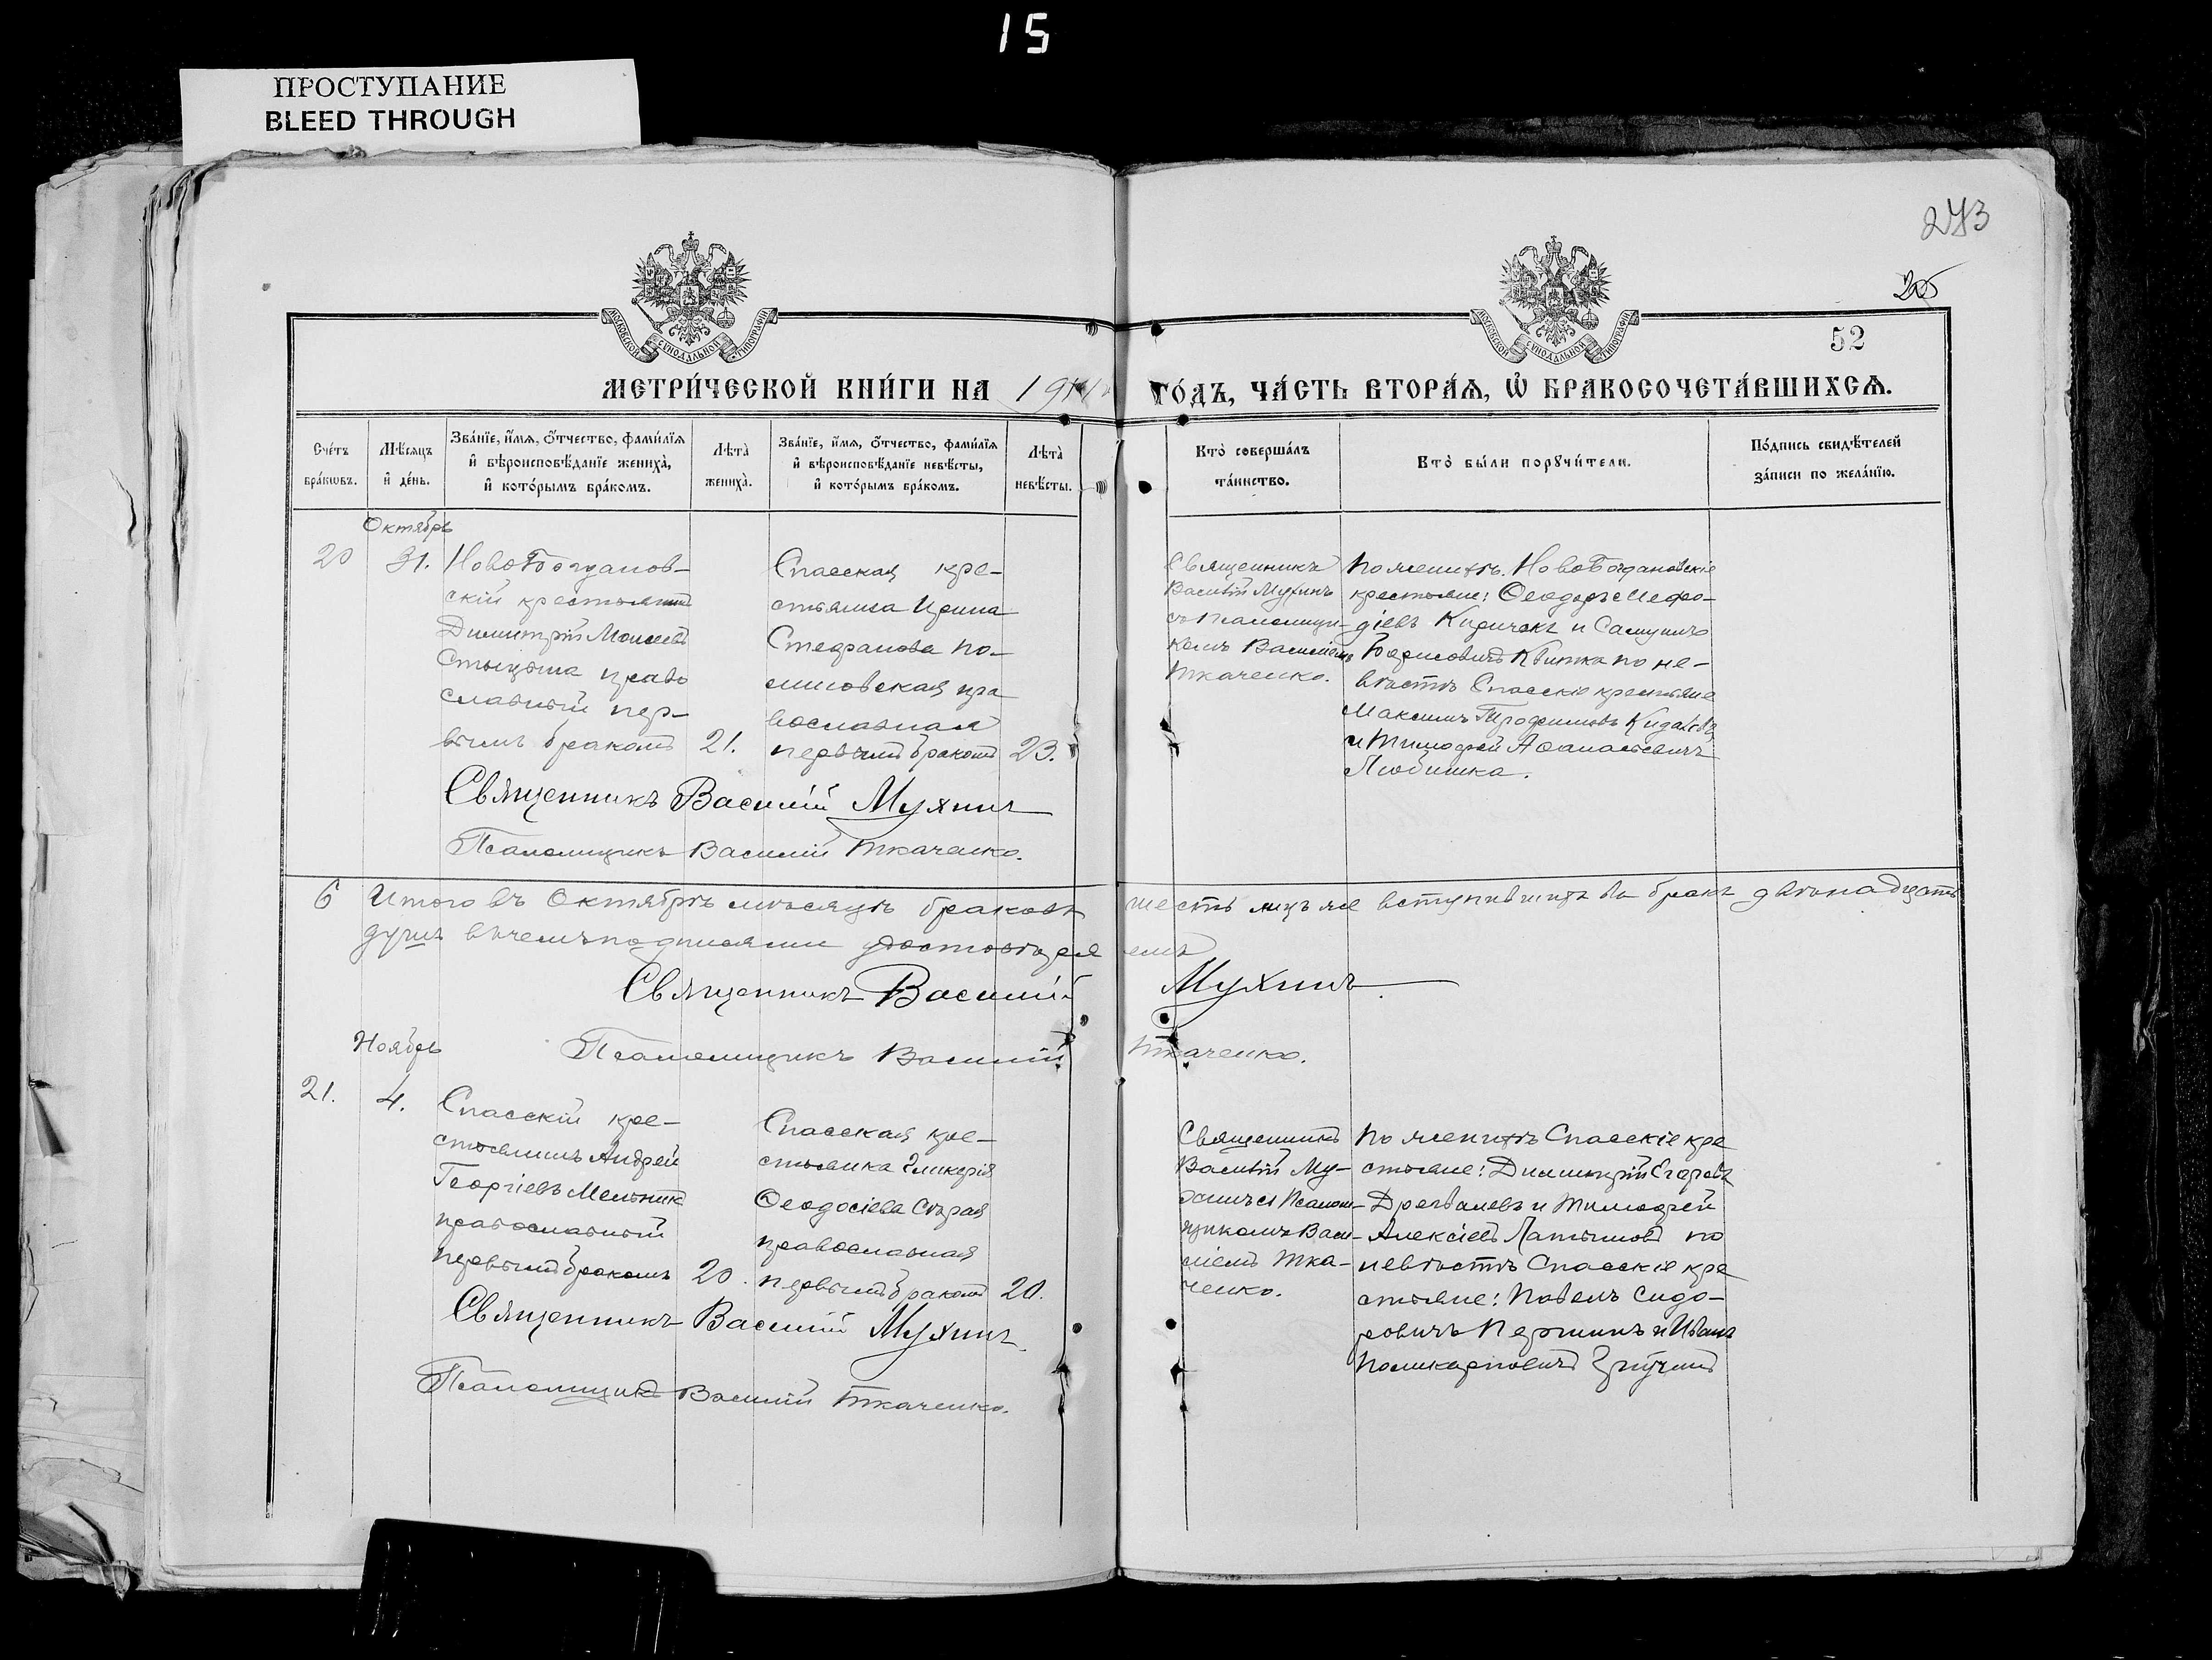 15
ПРОСТУПАНИЕ
BLEED THROUGH
273
52
МОСКОВСКОЙ СѴНОДАЛЬНОЙ ТИПОГРАФІИ
МОСКОВСКОЙ СѴНОДАЛЬНОЙ ТИПОГРАФІИ
МЕТРИ́ЧЕСКОЙ КНИ́ГИ НА 191 ГО́ДЪ, ЧА́СТЬ ВТОРА́Ѧ, Ѽ БРАКОСОЧЕТА́ВШИХСѦ.
Сче́тъ бра́кѡвъ.
Мѣ́сяцъ и҆ де́нь.
Зва́нїе, и҆́мѧ, ѻ҆́тчество, фами́лїѧ и҆ вѣроисповѣ́данїе жениха̀, и҆ кото́рымъ бра́комъ.
Лѣта̀ жениха̀.
Зва́нїе, и҆́мѧ, ѻ҆́тчество, фами́лїѧ и҆ вѣроисповѣ́данїе невѣ́сты, и҆ кото́рымъ бра́комъ.
Лѣта̀ невѣ́сты.
Кто̀ соверша́лъ та́инство.
Кто̀ бы́ли порꙋчи́тели.
По́дпись свидѣ́телей за́писи по жела́нїю.
Октябрь
20
31.
НовоБогданов-
скій крестьянинъ
Димитрій Моисеевъ
право
славный пер-
вымъ бракомъ
21.
Спасская кре-
стьянка Ирина
Стефанова По-
пра
вославная
первымъ бракомъ
23.
Священникъ
Василій Мухинъ
съ псаломщи-
комъ Василіемъ
Ткаченко.
По женихѣ. НовоБогдановскіе
крестьяне: Феодоръ Мефо-
діевъ Киричекъ и Самуилъ
Борисовичъ Квитка по не-
вѣстѣ Спасскіе крестьяне
Максимъ Трофимовъ
и Тимофей Афанасьевичъ
Любишка.
Священникъ Василій Мухинъ
Псаломщикъ Василій Ткаченко.
6 Итого въ Октябрѣ мѣсяцѣ браковъ шесть лицъ же вступившихъ въ бракъ двѣнадцать
душъ въ чемъ подписями удостовѣряемъ
Священникъ Василій Мухинъ
Псаломщикъ Василій Ткаченко.
Ноябрь
21.
4.
Спасскій кре-
стьянинъ Андрей
Георгіевъ Мельникъ
православный
первымъ бракомъ
20.
Спасская кре-
стьянка Гликерія
Феодосіева Сѣрая
православная
первымъ бракомъ
20.
Священникъ
Василій Му-
хинъ съ Псалом-
щикомъ Васи-
ліемъ Тка-
ченко.
По женихѣ Спасскіе кре
стьяне: Димитрій Егоровъ
и Тимофей
Алексіевъ Латышовъ по
невѣстѣ Спасскіе кре
стьяне: Павелъ Сидо-
ровичъ Першинъ и Иванъ
Поликарповичъ
Священникъ Василій Мухинъ
Псаломщикъ Василій Ткаченко.